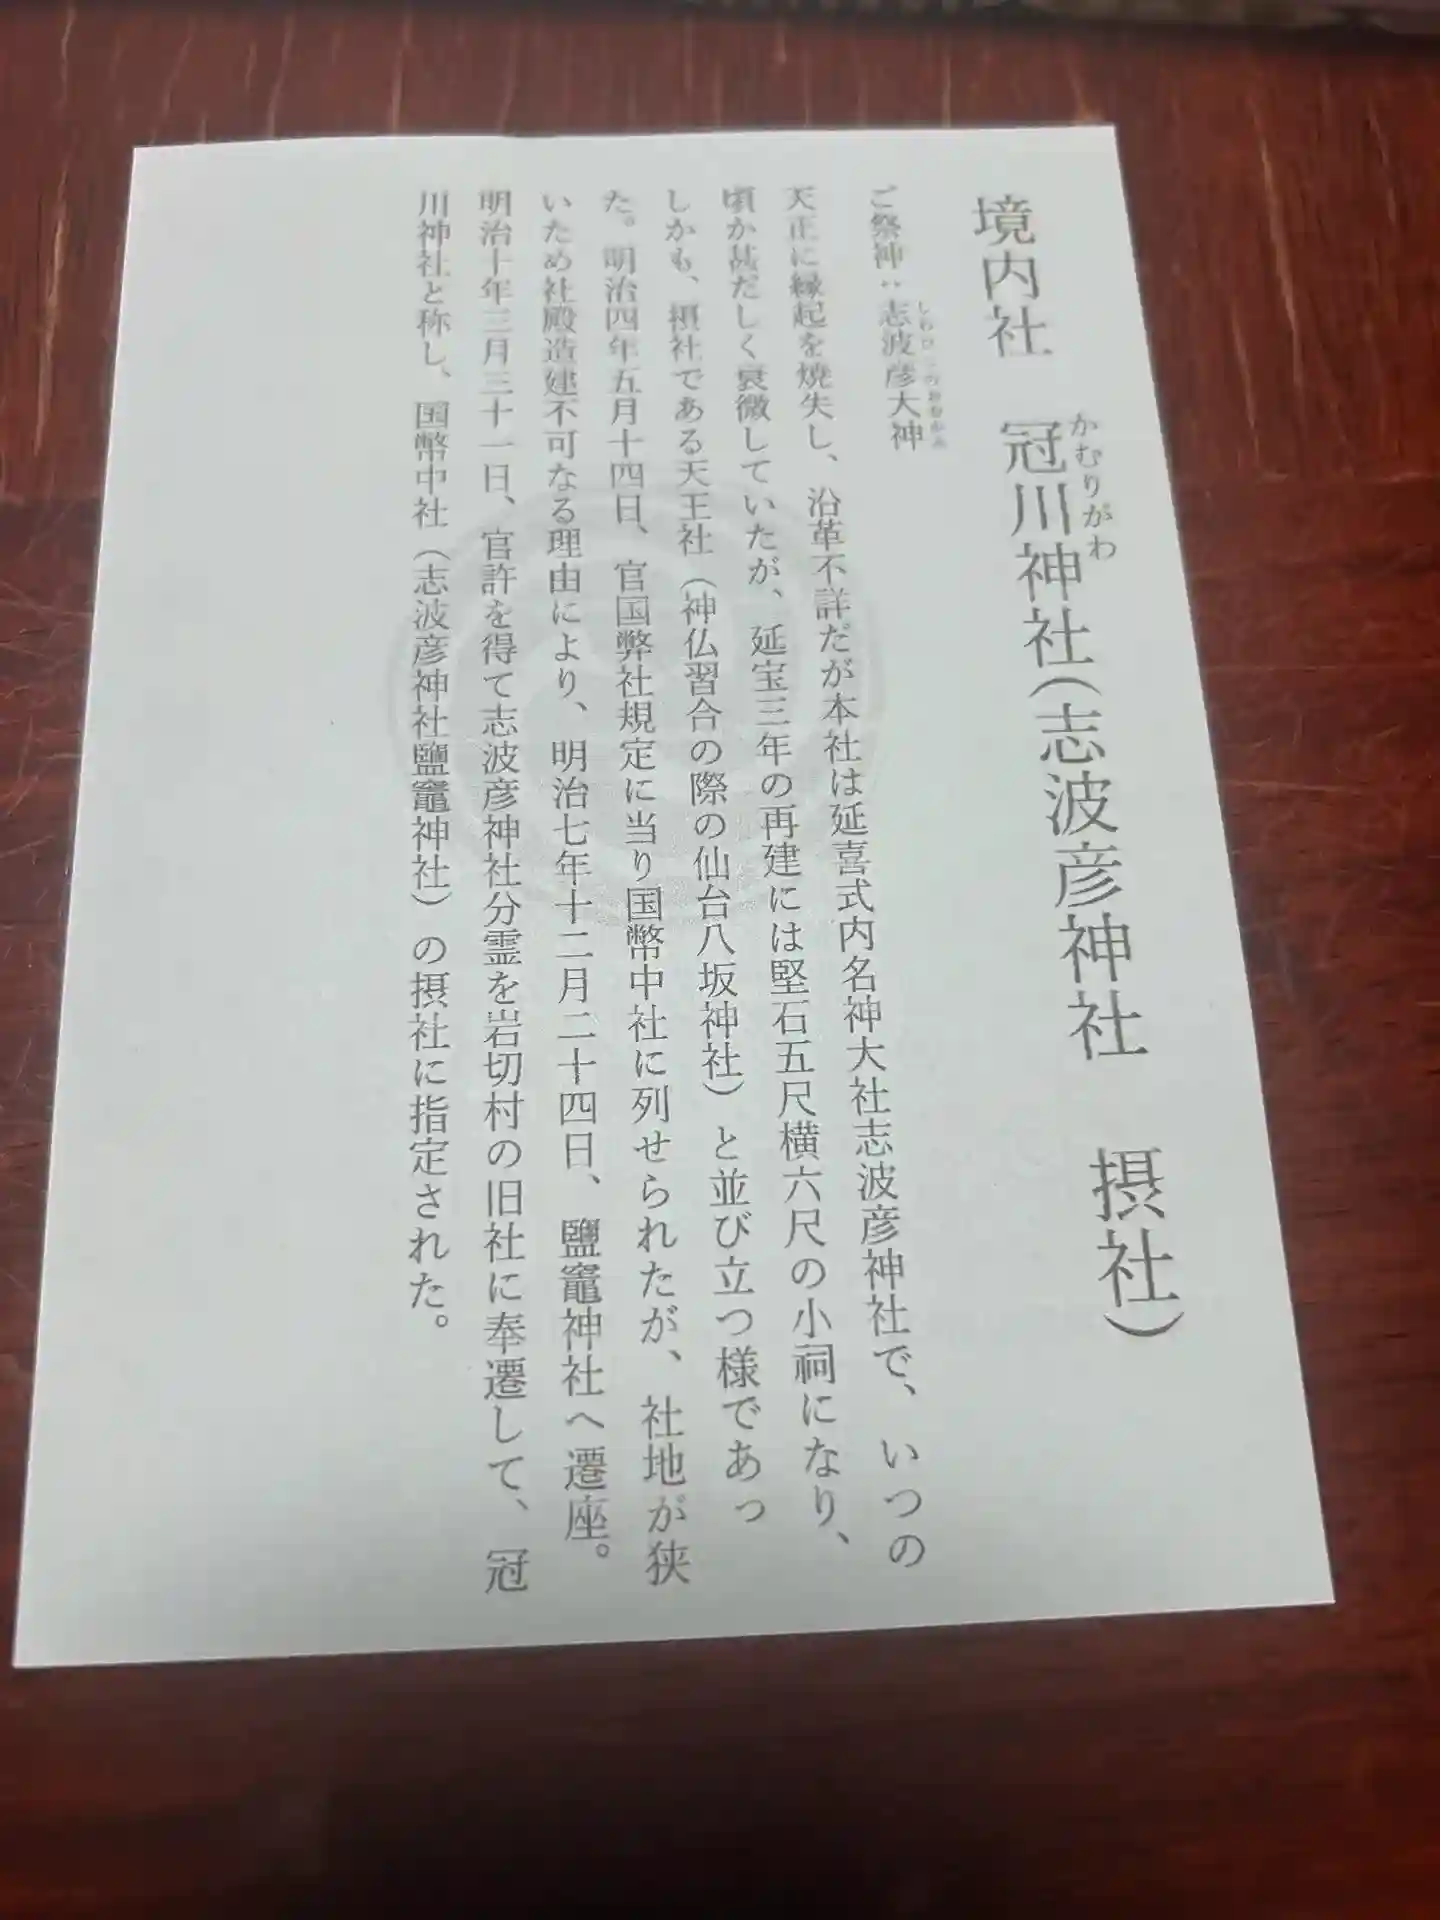 境内社 冠川神社(志波彦神社 摂社)
かむりがわ
ご祭神：志波彦大神
しわひこのおおかみ
天正に縁起を焼失し、沿革不詳だが本社は延喜式内名神大社志波彦神社で、いつの
頃か甚だしく衰微していたが、延宝三年の再建には堅石五尺横六尺の小祠になり、
しかも、摂社である天王社（神仏習合の際の仙台八坂神社）と並び立つ様であっ
た。明治四年五月十四日、官国弊社規定に当り国幣中社に列せられたが、社地が狭
いため社殿造建不可なる理由により、明治七年十二月二十四日、鹽竈神社へ遷座。
明治十年三月三十一日、官許を得て志波彦神社分霊を岩切村の旧社に奉遷して、冠
川神社と称し、国幣中社（志波彦神社鹽竈神社）の摂社に指定された。